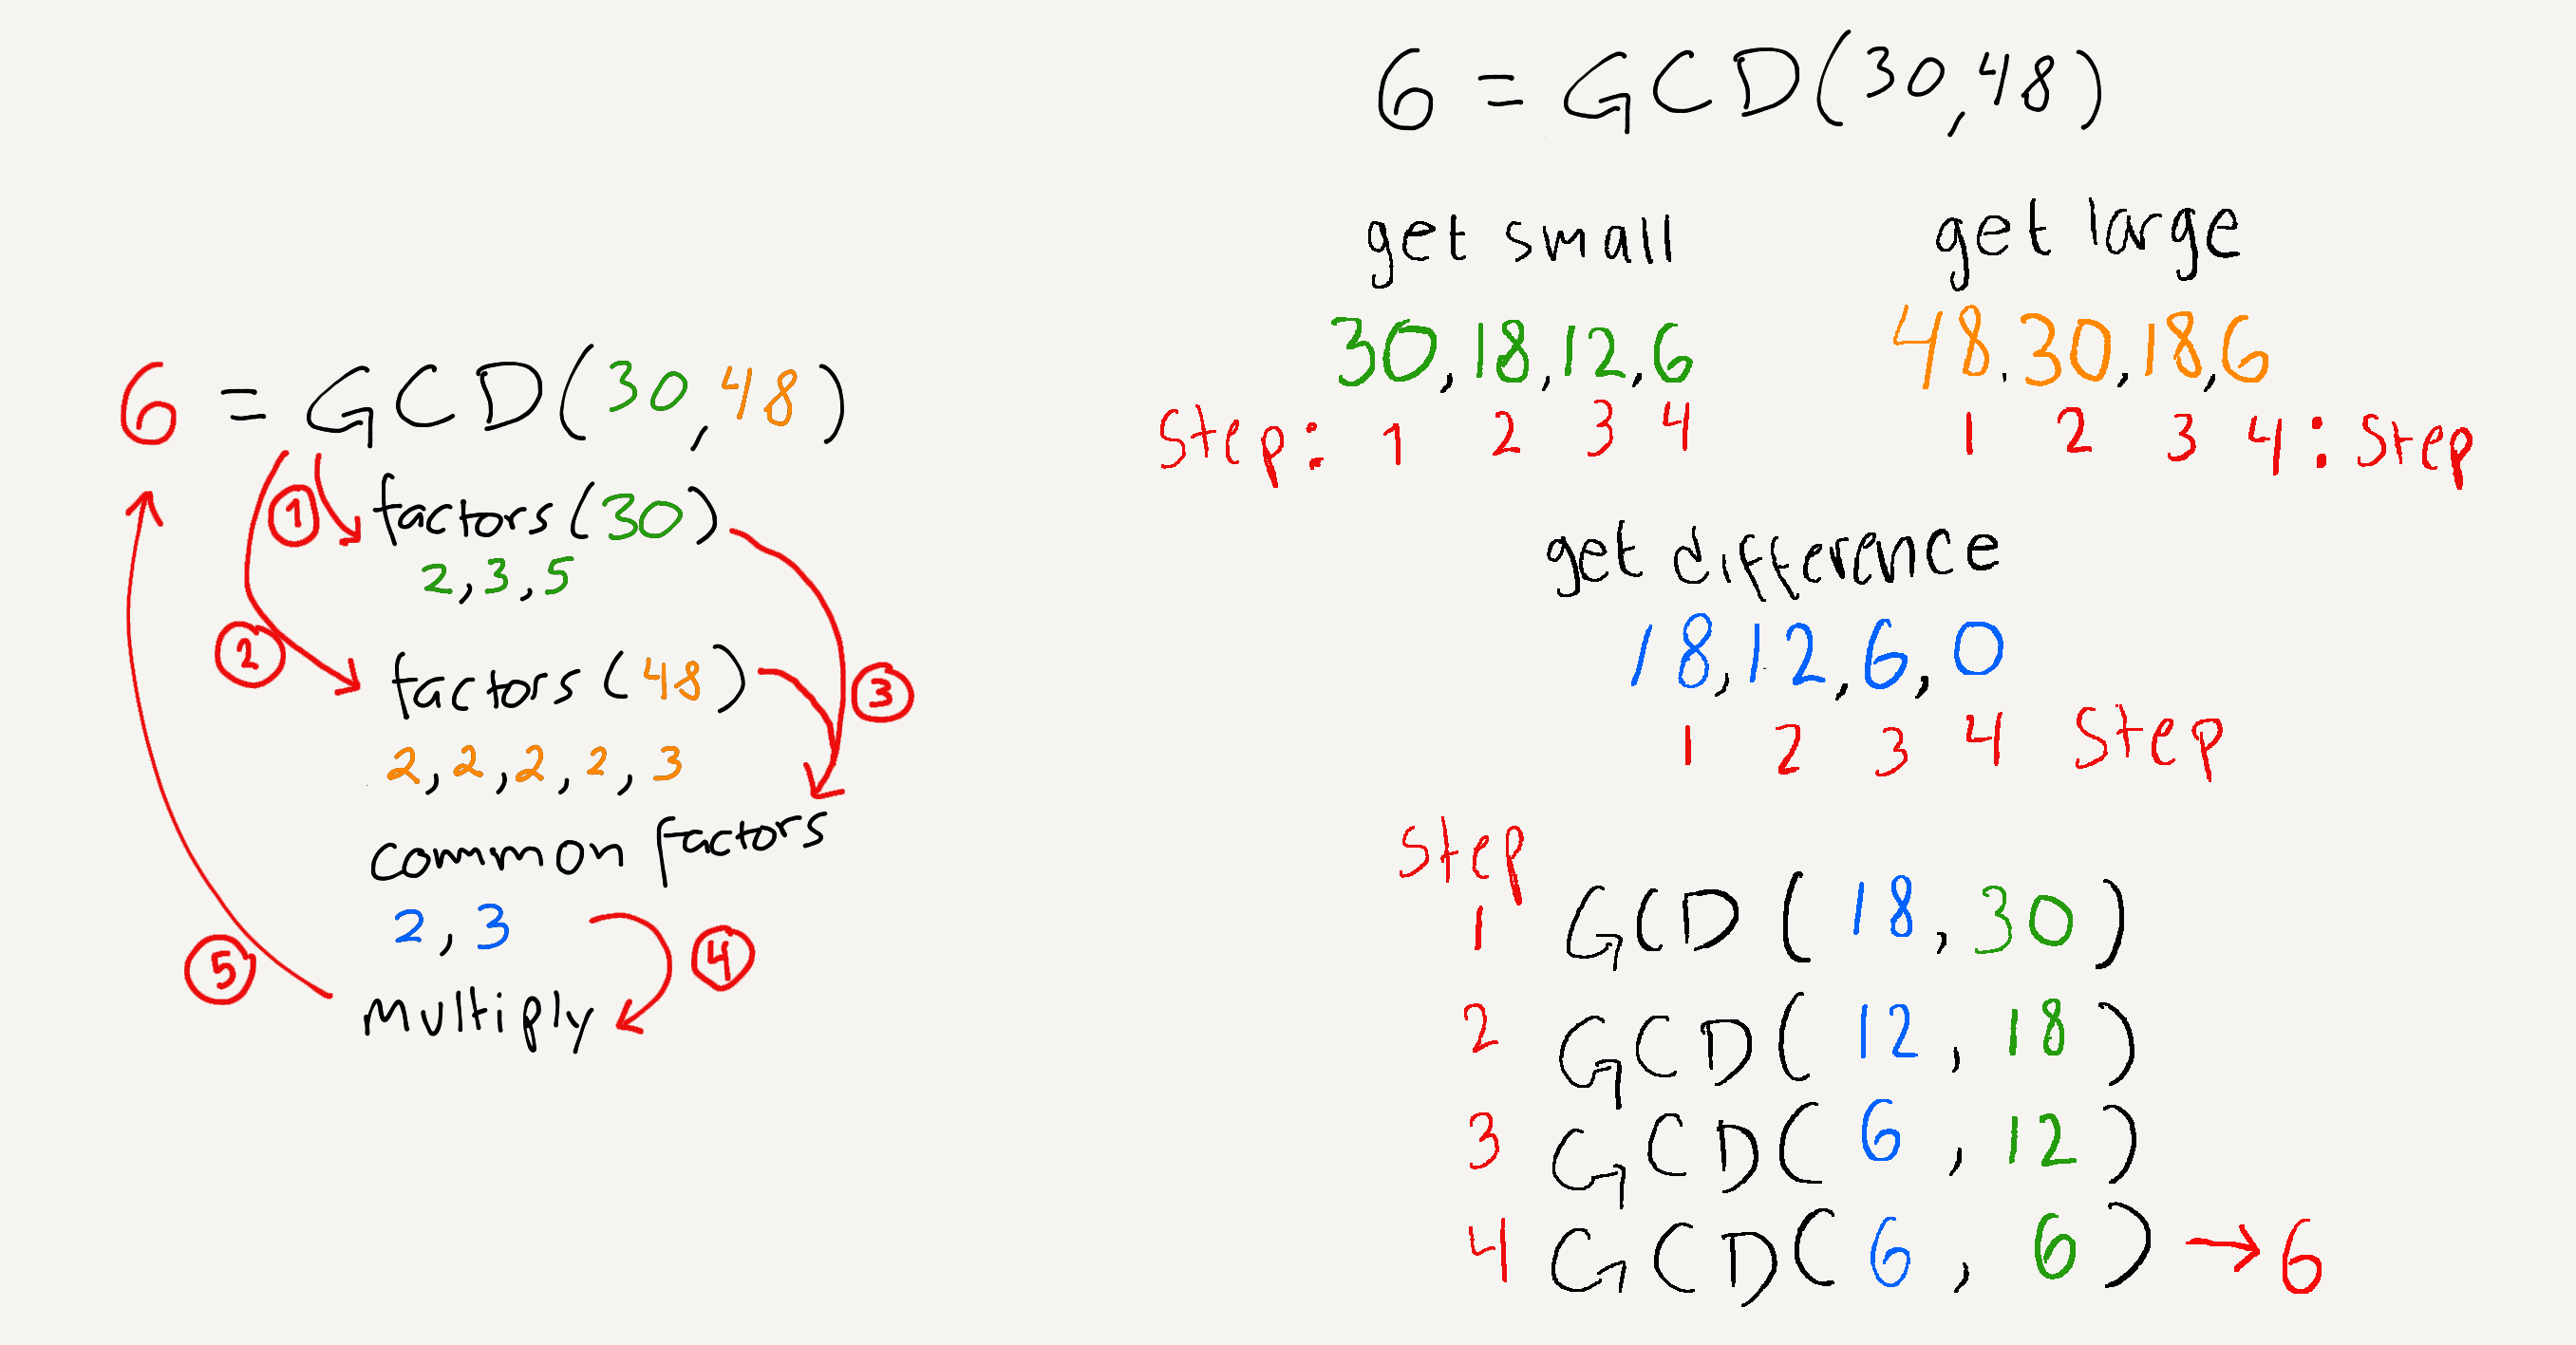 6 = GCD(30,48)
① factors(30)
2,3,5
② factors(48)
③
2,2,2,2,3
common factors
2,3
④
⑤
multiply
6 = GCD(30,48)
get small
30,18,12,6
Step: 1 2 3 4
get large
48.30,18,6
1 2 3 4: Step
get difference
18,12,6,0
1 2 3 4 Step
Step
1 GCD(18,30)
2 GCD(12,18)
3 GCD(6,12)
4 GCD(6,6) → 6